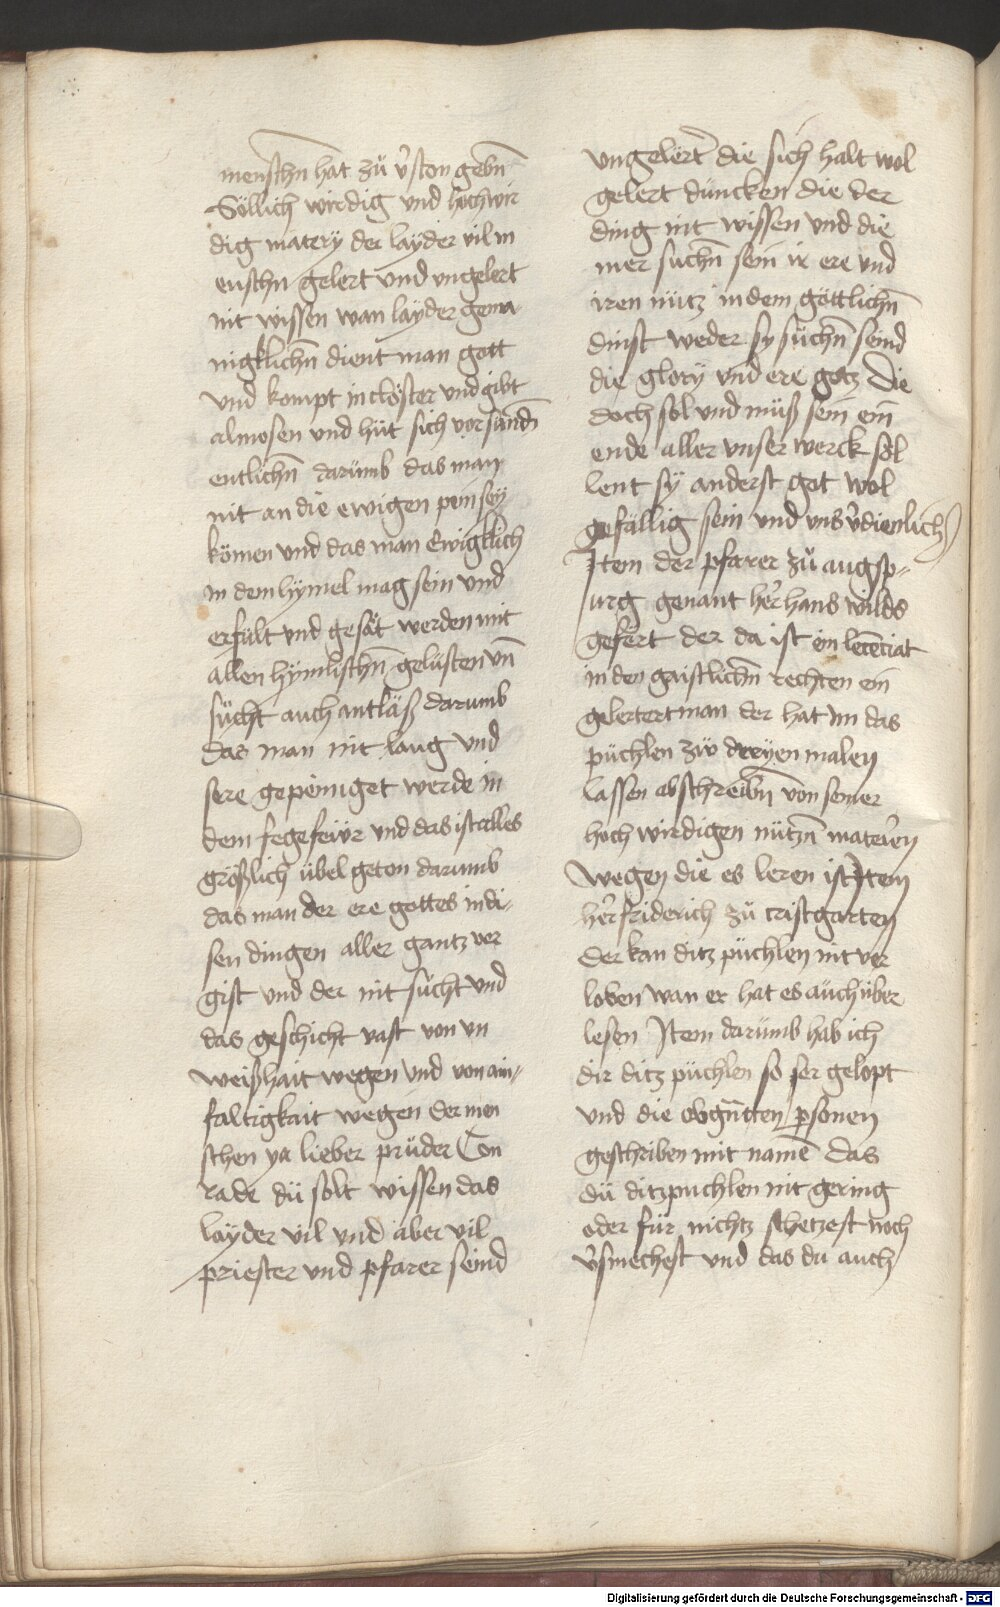 menschn hat zů v̉sten gebn̄
Söllich wirdig vnd hochwir
dig matery der layder vil m
enschn gelert vnd vngelert
nit wissen wan layder gema
nigklichn̄ dient man gott
vnd kompt in clöster vnd gibt
almosen vnd hüt sich vor sündn̄
entlichn̄ darümb das man
nit an die ewigen pein sey
kömen vnd das man Ewigklich
in dem hymel mag sein vnd
erfült vnd gesät werden mit
allen hymlischn̄ gelüsten vn̄
sücht auch antläß darumb
das man nit lang vnd
sere gepeiniget werde in
dem fegefeür vnd das ist alles
größlich übel geton darumb
das man der ere gottes in di-
sen dingen aller gantz ver
gist vnd der nit sücht vnd
das geschicht vast von vn
weißhait wegen vnd von ain-
faltigkait wegen der men
schen ya lieber prüder Con
rade dü solt wissen das
layder vil vnd aber vil
priester vnd pfarer seind
vngelert die sich halt wol
gelert düncken die der
ding nit wissen vnd die
mer suchn̄ sein ir ere vnd
iren nütz in dem göttlichn̄
dinst weder sy süchn̄ seind
die glory vnd ere gotz die
doch sol vnd müß sein ein
ende aller vnser werck söl
lent sy anderst got wol
gefällig sein vnd vns v̉dienlich
Item der pfarer zů augsp-
urg genant her̉ hans wilds
gefert der da ist ein lecenciat
in den gaistlichn̄ rechten ein
gelertert man der hat im das
püchlen zẘ dreyen malen
lassen abschreibn̄ von seiner
hochwirdigen nützn̄ mater̉en
wegen die es leren ist Item
her̉ friderich zů cristgarten
der kan ditz püchlen nit ver
loben wan er hat es auch über
lesen Item darümb hab ich
dir ditz püchlen so ser gelopt
vnd die obgn̄ten personen
geschriben mit namē das
dü ditz puchlen nit gering
oder für nichtz schetzest noch
v̉smechest vnd das du auch
Digitalisierung gefördert durch die Deutsche Forschungsgemeinschaft - DFG